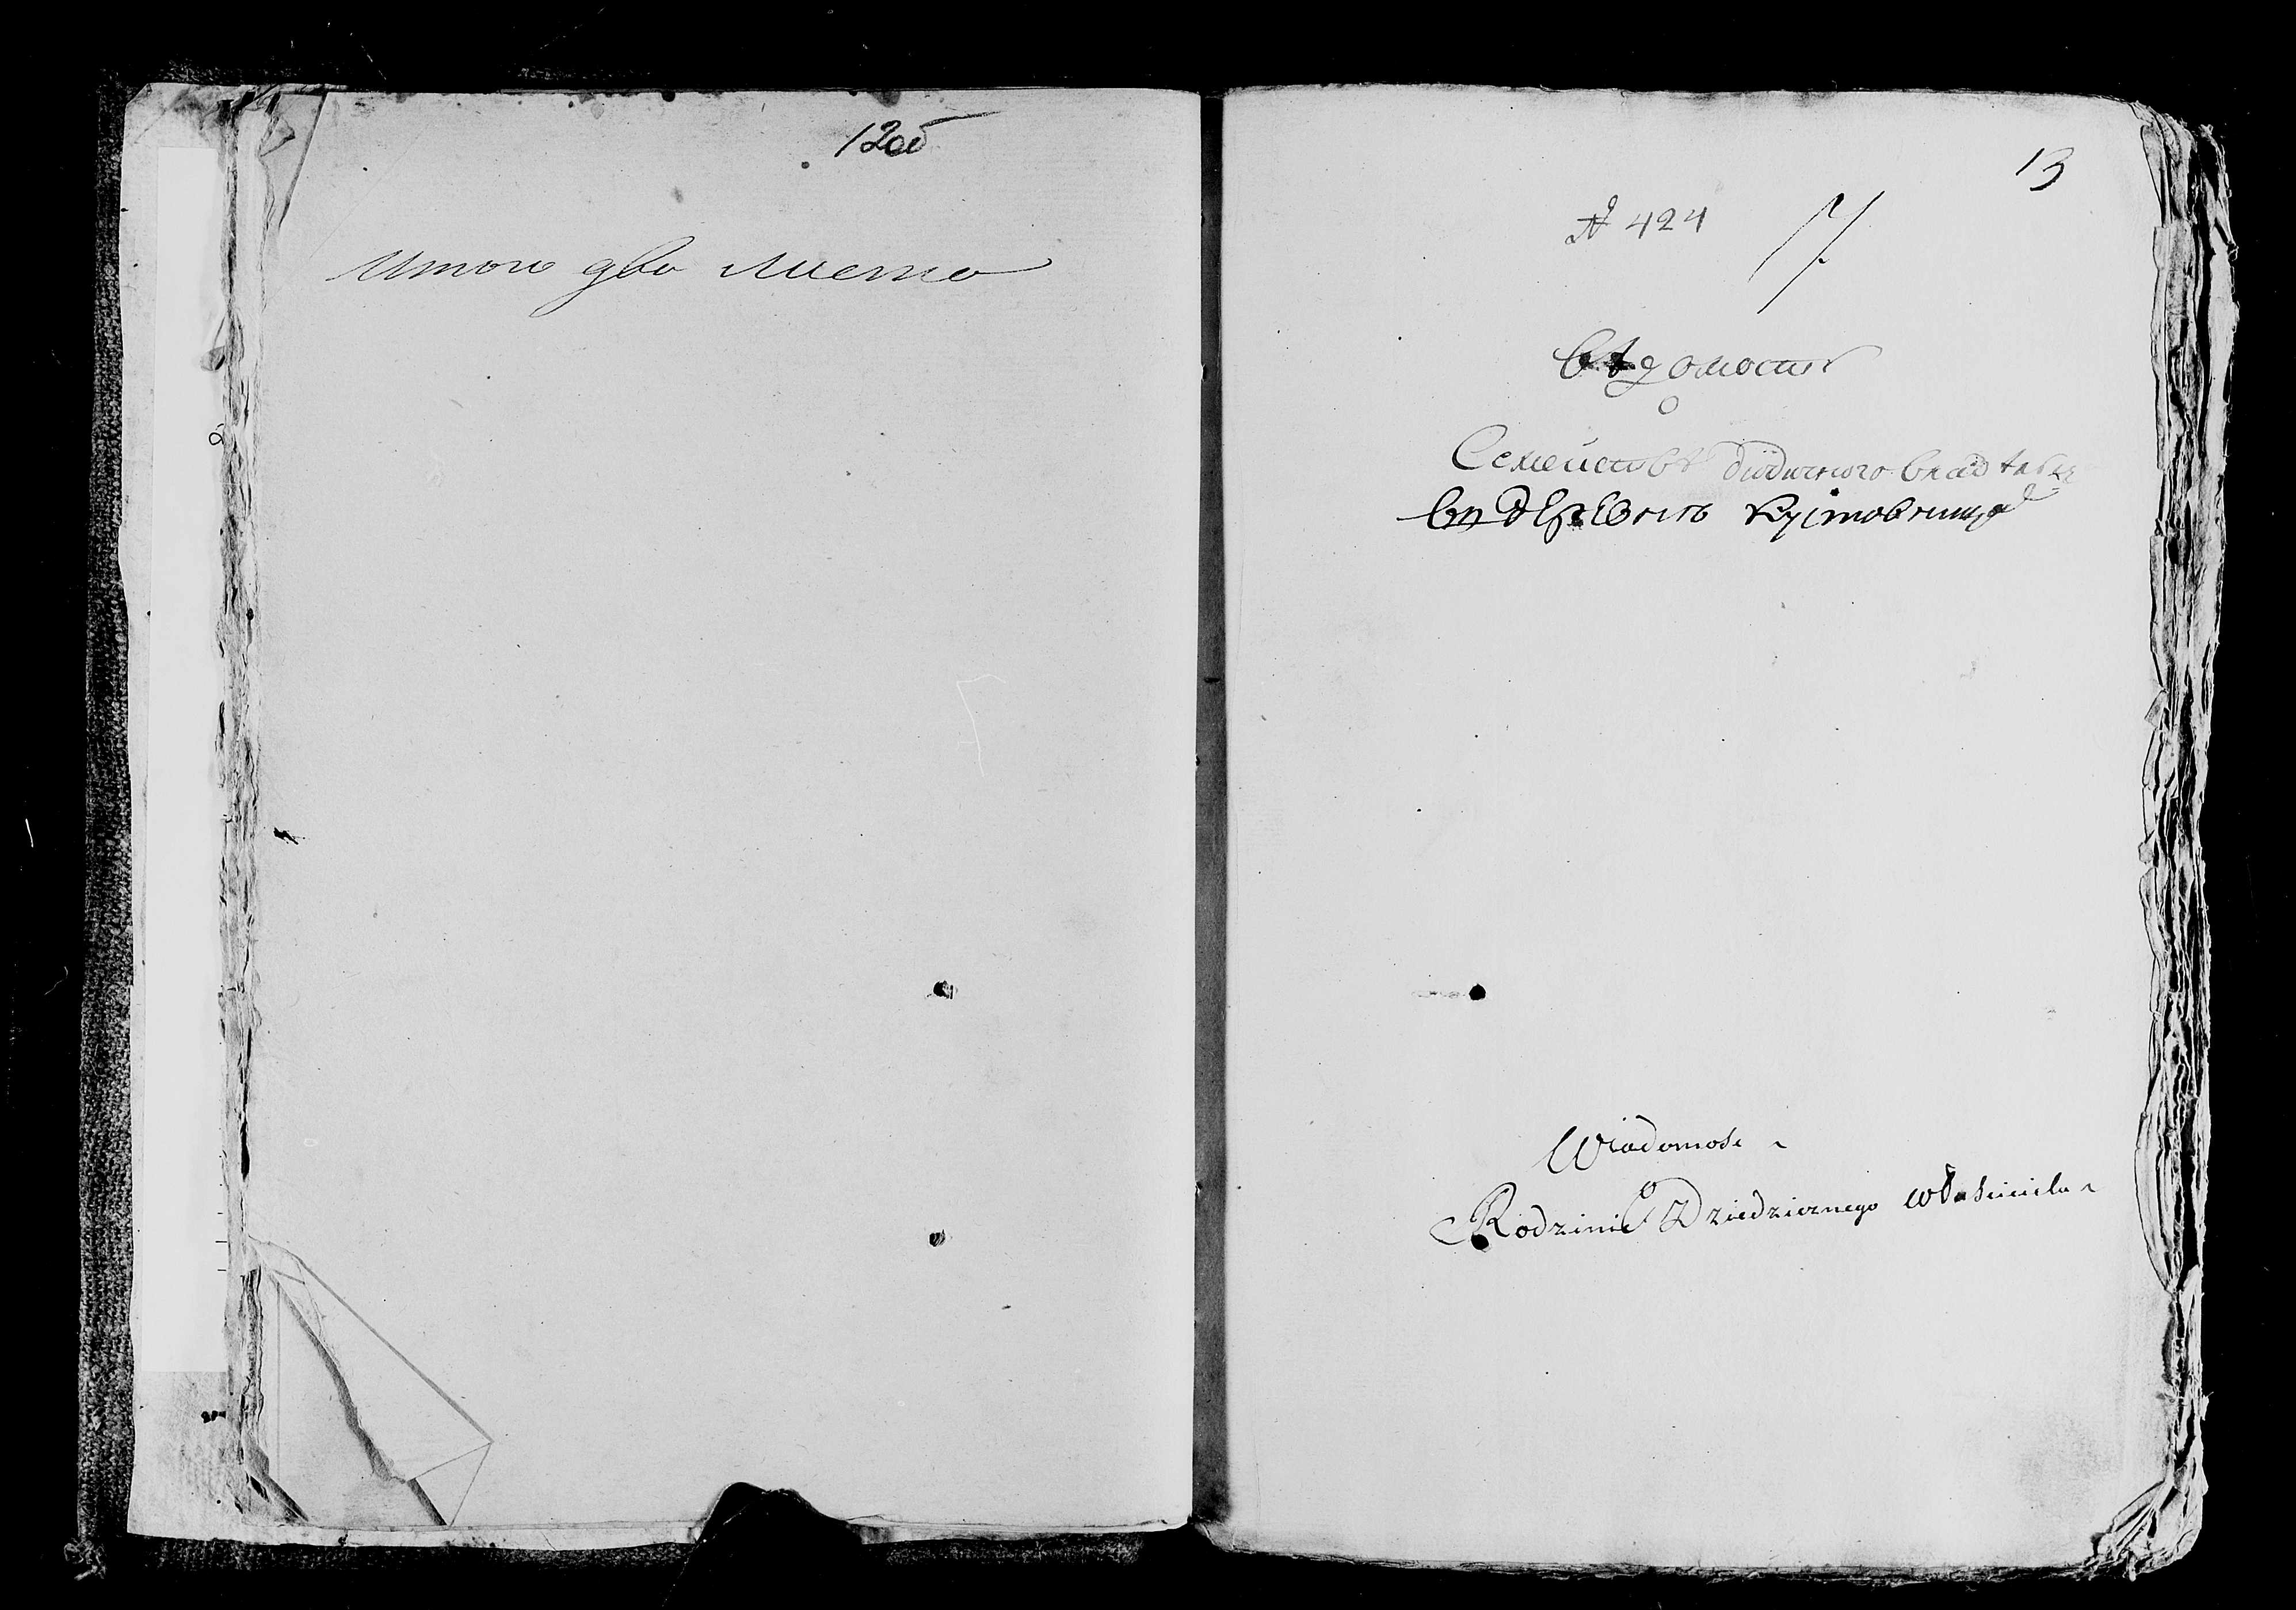 12об
Итого два листа
13
№ 424
7.
Вѣдомость
о
Семействѣ дѣдичного владѣльца
въ деревнѣ Кустовница
Wiadomość
o
Rodzinie Dziedzicznego właściciela